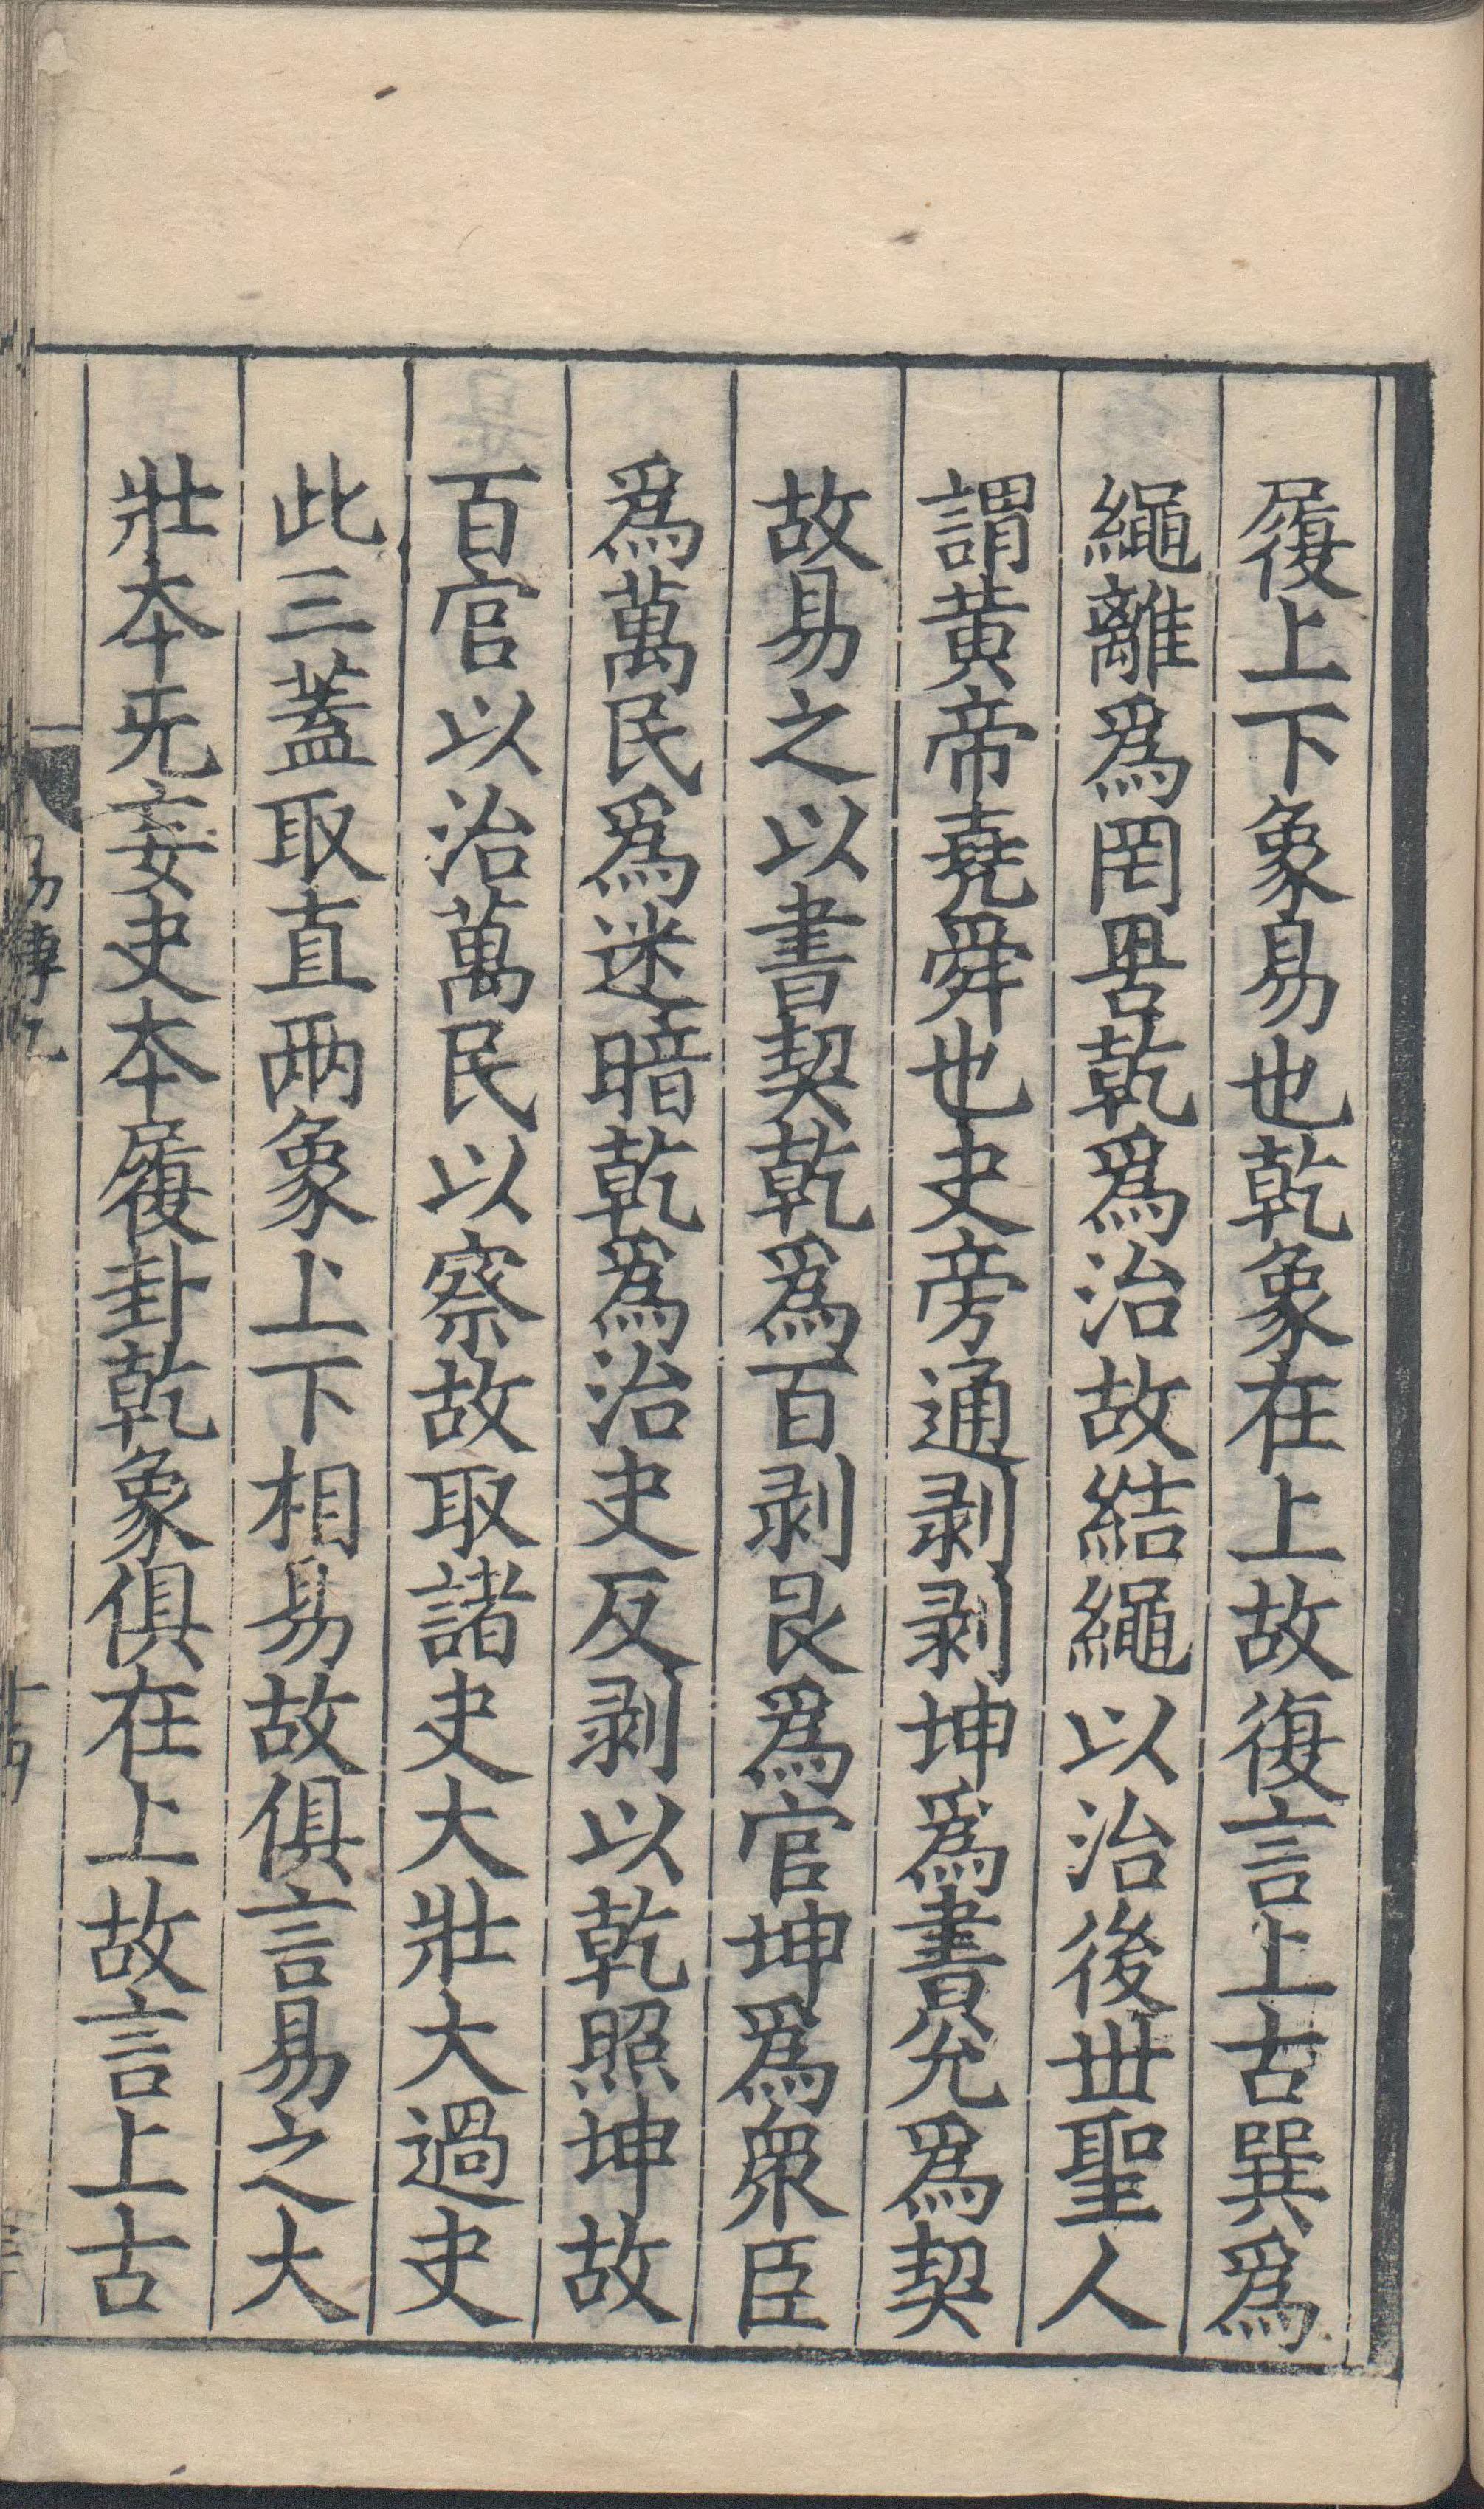 履上下象易也乾象在上故復言上古巽爲
繩離爲罔罟乾爲治故結繩以治後世聖人
謂黄帝堯舜也夬旁通剥剥坤爲書兊爲契
故易之以書契乾爲百剥艮爲官坤爲衆臣
爲萬民爲迷暗乾爲治夬反剥以乾照坤故
百官以治萬民以察故取諸夬大壯大過夬
此三蓋取直兩象上下相易故俱言易之大
壯本无妄夬本履卦乾象俱在上故言上古